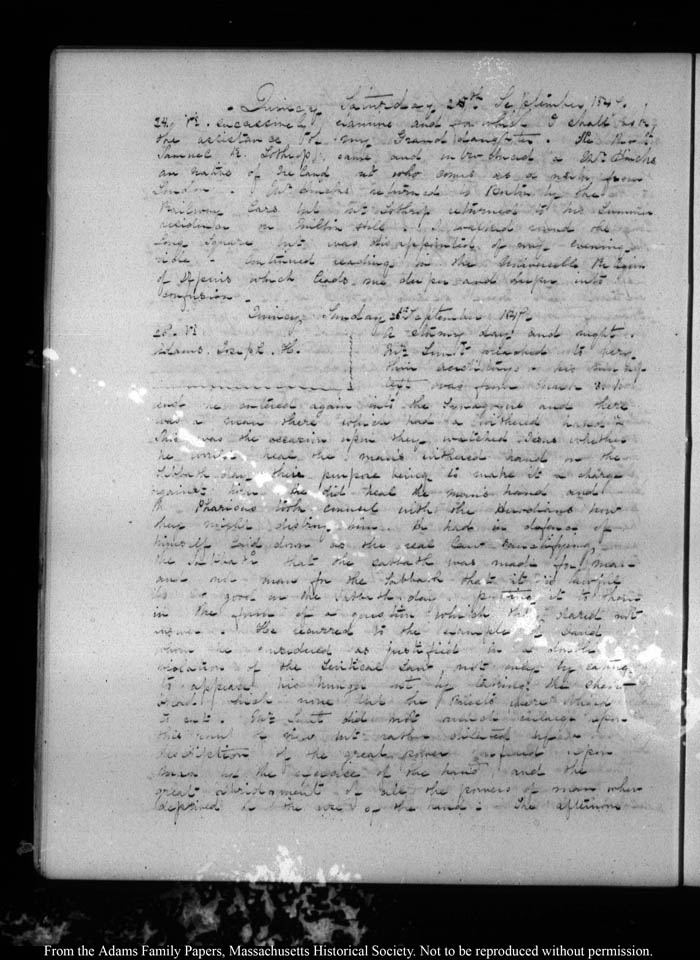 Quincy Saturday 25th September 1847.
24. VI. successively examine and for which I shall
the assistance of my Grand daughter. The
Samuel K. Lothrop, came and introduced a Mr
a native of Ireland but who comes as a from
London. Mr returned to Boston by the
Railway Cars but Mr Lothrop returned to his Summer
residence on Milton hill. I walked round the
long Square but was disappointed of my evening
ride. Continued reading in the
of which leads me deeper and deeper into
confusion.
Quincy, Sunday 26th September 1847.
26. VI. A stormy day and night.
Adams. Joseph. H. Mr Lunt preached to very
thin auditory his
text was from Mark
and he entered again into the Synagogue and there
was a man there which had a withered hand
This was the occasion upon they watched Jesus whether
he would heal the man's withered hand on the
Sabbath day their purpose being to make it a charge
against him he did heal the man's hand and
the Pharisees took counsel with the Herodians how
they might destroy him. He had in defence of
himself laid down as the real law sanctifying
the Sabbath that the sabbath was made for man
and not man for the Sabbath that it is lawful
to do good on the Sabbath day. putting it to them
in the form of a question which they dared not
answer. He recurred to the example of David
whom he considered as justified in a double
violation of the Levitical Law not only by eating
to appease his hunger but by taking the shew
bread which none but the Priests were allowed
to eat. Mr Lunt did not much enlarge upon
this point of view but rather dilated upon a
description of the great power conferred upon
man by the exercise of the hand and the
great abridgment of all the powers of man when
deprived of the use of the hand. The afternoon
From the Adams Family Papers, Massachusetts Historical Society. Not to be reproduced without permission.